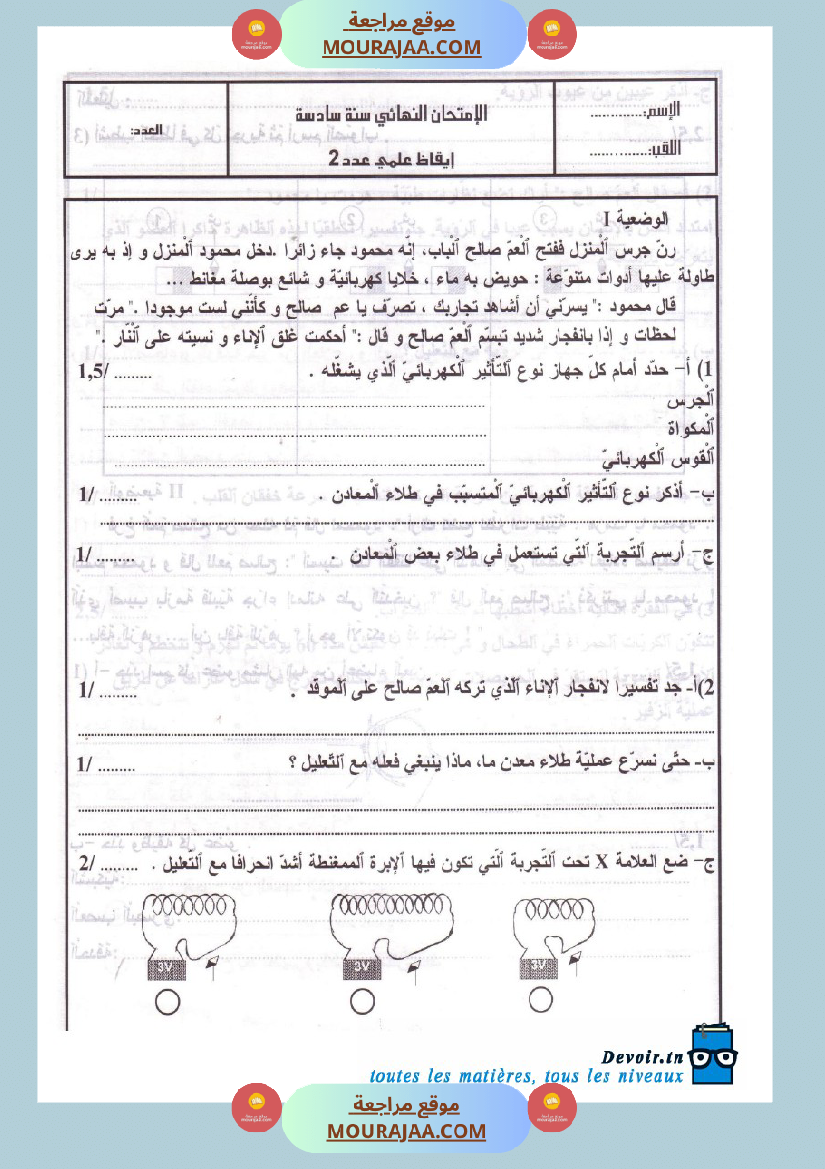 موقع مراجعة
MOURAJAA.COM
الإسم:.............
اللقب:..............
الإمتحان النهائي سنة سادسة
إيقاظ علمي عدد 2
العدد:
الوضعية I
رنّ جرس ٱلْمنزل ففتح ٱلْعمّ صالح ٱلْباب، إنّه محمود جاء زائرًا .دخل محمود ٱلْمنزل و إذ به يرى
طاولة عليها أدوات متنوّعة : حويض به ماء ، خلايا كهربائيّة و شائع بوصلة مغانط ...
قال محمود :" يسرّني أن أشاهد تجاربك ، تصرّف يا عم صالح و كأنّني لست موجودا ." مرّت
لحظات و إذا بانفجار شديد تبسّم ٱلْعمّ صالح و قال :" أحكمت غلق ٱلإناء و نسيته على ٱلنّار ."
1) أ- حدّد أمام كلّ جهاز نوع ٱلتّأثير ٱلْكهربائيّ ٱلّذي يشغّله . ......... /1,5
ٱلْجرس
ٱلْمكواة
ٱلْقوس ٱلْكهربائيّ
ب- أذكر نوع ٱلتّأثير ٱلْكهربائيّ ٱلْمتسبّب في طلاء ٱلْمعادن . ......... /1
ج- أرسم ٱلتّجربة ٱلّتي تستعمل في طلاء بعض ٱلْمعادن . ......... /1
2)أ- جد تفسيرا لانفجار ٱلإناء ٱلّذي تركه ٱلعمّ صالح على ٱلْموقد . ......... /1
ب- حتّى نسرّع عمليّة طلاء معدن ما، ماذا ينبغي فعله مع ٱلتّعليل ؟ ......... /1
ج- ضع العلامة X تحت ٱلتّجربة ٱلّتي تكون فيها ٱلإبرة ٱلممغنطة أشدّ انحرافا مع ٱلتّعليل . ......... /2
3V 3V 3V
Devoir.tn
toutes les matières, tous les niveaux
موقع مراجعة
MOURAJAA.COM